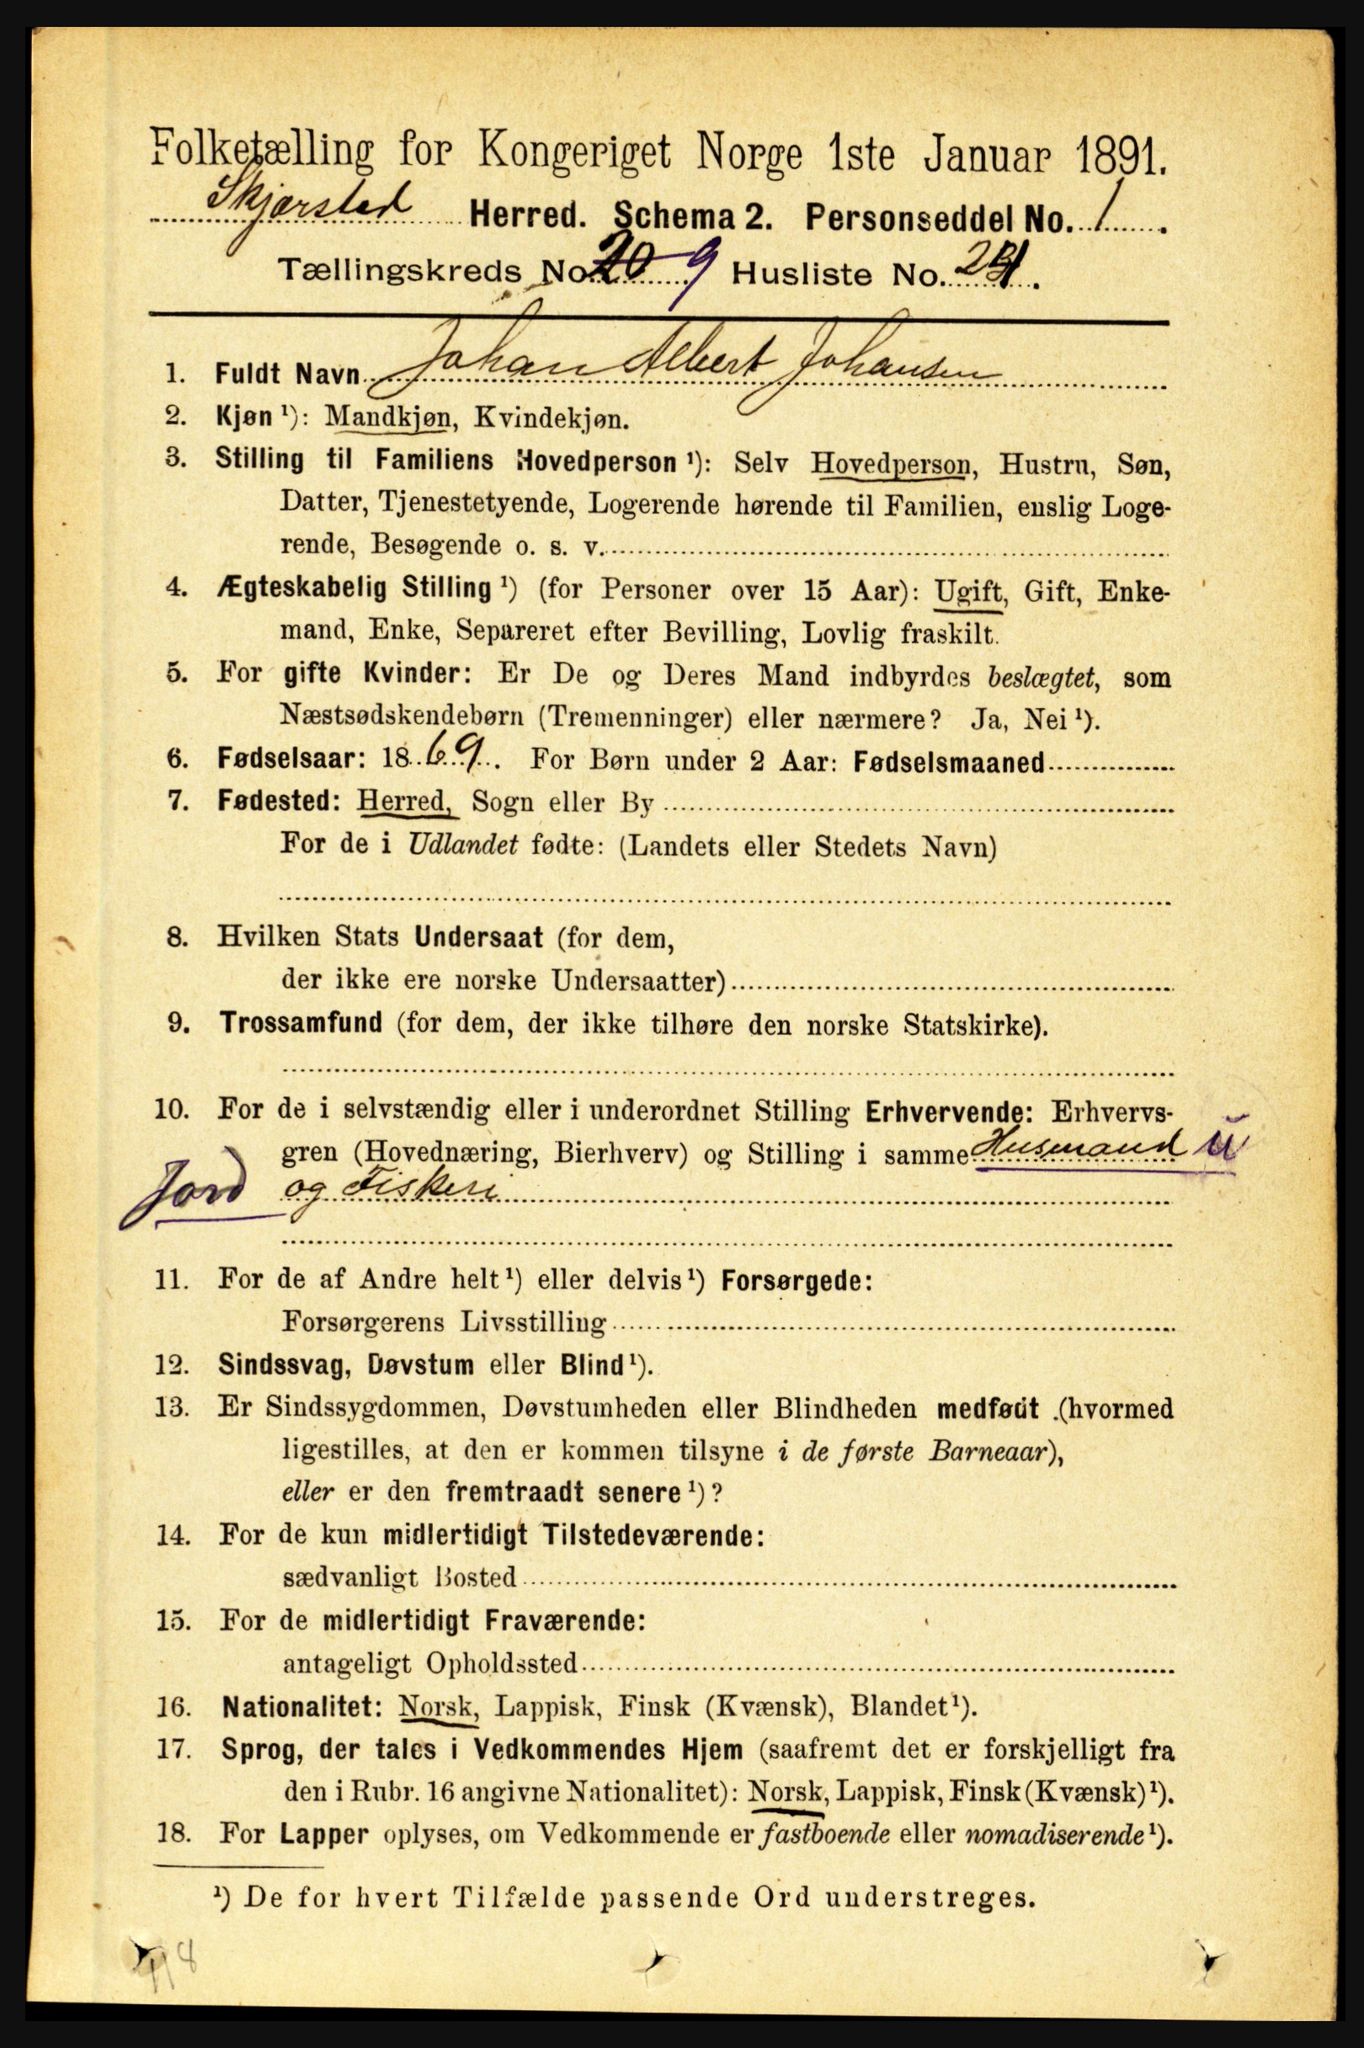 Folketælling for Kongeriget Norge 1ste Januar 1891.
Skjærsted Herred. Schema 2. Personseddel No. 1.
Tællingskreds No. 20 9 Husliste No. 231.
1. Fuldt Navn Johan Albert Johansen
2. Kjøn ¹): Mandkjøn, Kvindekjøn.
3. Stilling til Familiens Hovedperson ¹): Selv Hovedperson, Hustru, Søn,
Datter, Tjenestetyende, Logerende hørende til Familien, enslig Loge-
rende, Besøgende o. s. v.
4. Ægteskabelig Stilling ¹) (for Personer over 15 Aar): Ugift, Gift, Enke-
mand, Enke, Separeret efter Bevilling, Lovlig fraskilt.
5. For gifte Kvinder: Er De og Deres Mand indbyrdes beslægtet, som
Næstsødskendebørn (Tremenninger) eller nærmere? Ja, Nei ¹).
6. Fødselsaar: 1869. For Børn under 2 Aar: Fødselsmaaned
7. Fødested: Herred, Sogn eller By
For de i Udlandet fødte: (Landets eller Stedets Navn)
8. Hvilken Stats Undersaat (for dem,
der ikke ere norske Undersaatter)
9. Trossamfund (for dem, der ikke tilhøre den norske Statskirke).
10. For de i selvstændig eller i underordnet Stilling Erhvervende: Erhvervs-
gren (Hovednæring, Bierhverv) og Stilling i samme Husmand u
Jord og Fiskeri
11. For de af Andre helt ¹) eller delvis ¹) Forsørgede:
Forsørgerens Livsstilling
12. Sindssvag, Døvstum eller Blind ¹).
13. Er Sindssygdommen, Døvstumheden eller Blindheden medfødt (hvormed
ligestilles, at den er kommen tilsyne i de første Barneaar),
eller er den fremtraadt senere ¹)?
14. For de kun midlertidigt Tilstedeværende:
sædvanligt Bosted
15. For de midlertidigt Fraværende:
antageligt Opholdssted
16. Nationalitet: Norsk, Lappisk, Finsk (Kvænsk), Blandet ¹).
17. Sprog, der tales i Vedkommendes Hjem (saafremt det er forskjelligt fra
den i Rubr. 16 angivne Nationalitet): Norsk, Lappisk, Finsk (Kvænsk) ¹).
18. For Lapper oplyses, om Vedkommende er fastboende eller nomadiserende ¹).
¹) De for hvert Tilfælde passende Ord understreges.